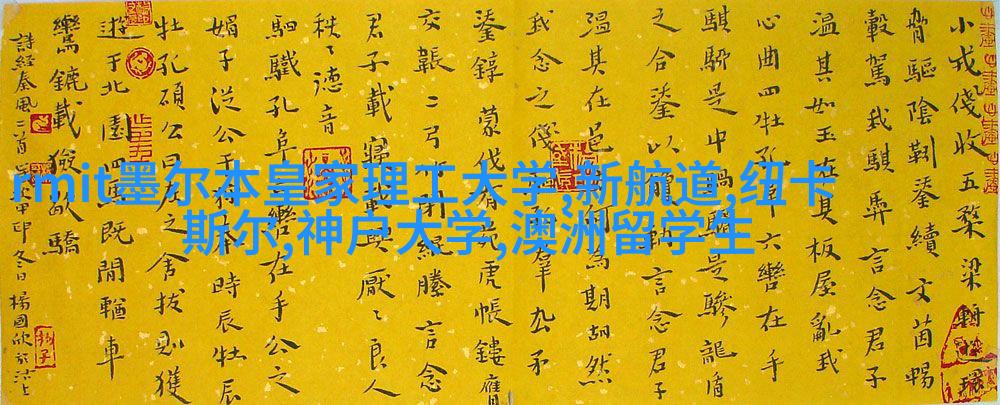 rmit墨尔本皇家理工大学,新航道,纽卡
斯尔,神户大学,澳洲留学生
小戎俴收五楘梁輈環
脅驅陰靷鋈續文茵暢
轂駕我騏馵言念君子
溫其如玉在其板屋亂我
心曲四牡孔六轡在手
騏駵是中騧是驂龍盾
之合鋈以言念君子
溫其在邑何為期胡然
我念之俴孔羣厹矛
鋈錞蒙伐有苑虎帳鏤膺
交韔二弓閉緄縢言念
君子載寢載興厭〻良人
秩〻德音
駟驖孔阜轡在手公之
媚子從公于狩時辰牡辰
牡孔碩公曰左之舍拔則獲
遊于北園四馬既閒輶車
鸞鑣載獫歇驕
詩經秦風二首甲申冬日楊國欣於沽上